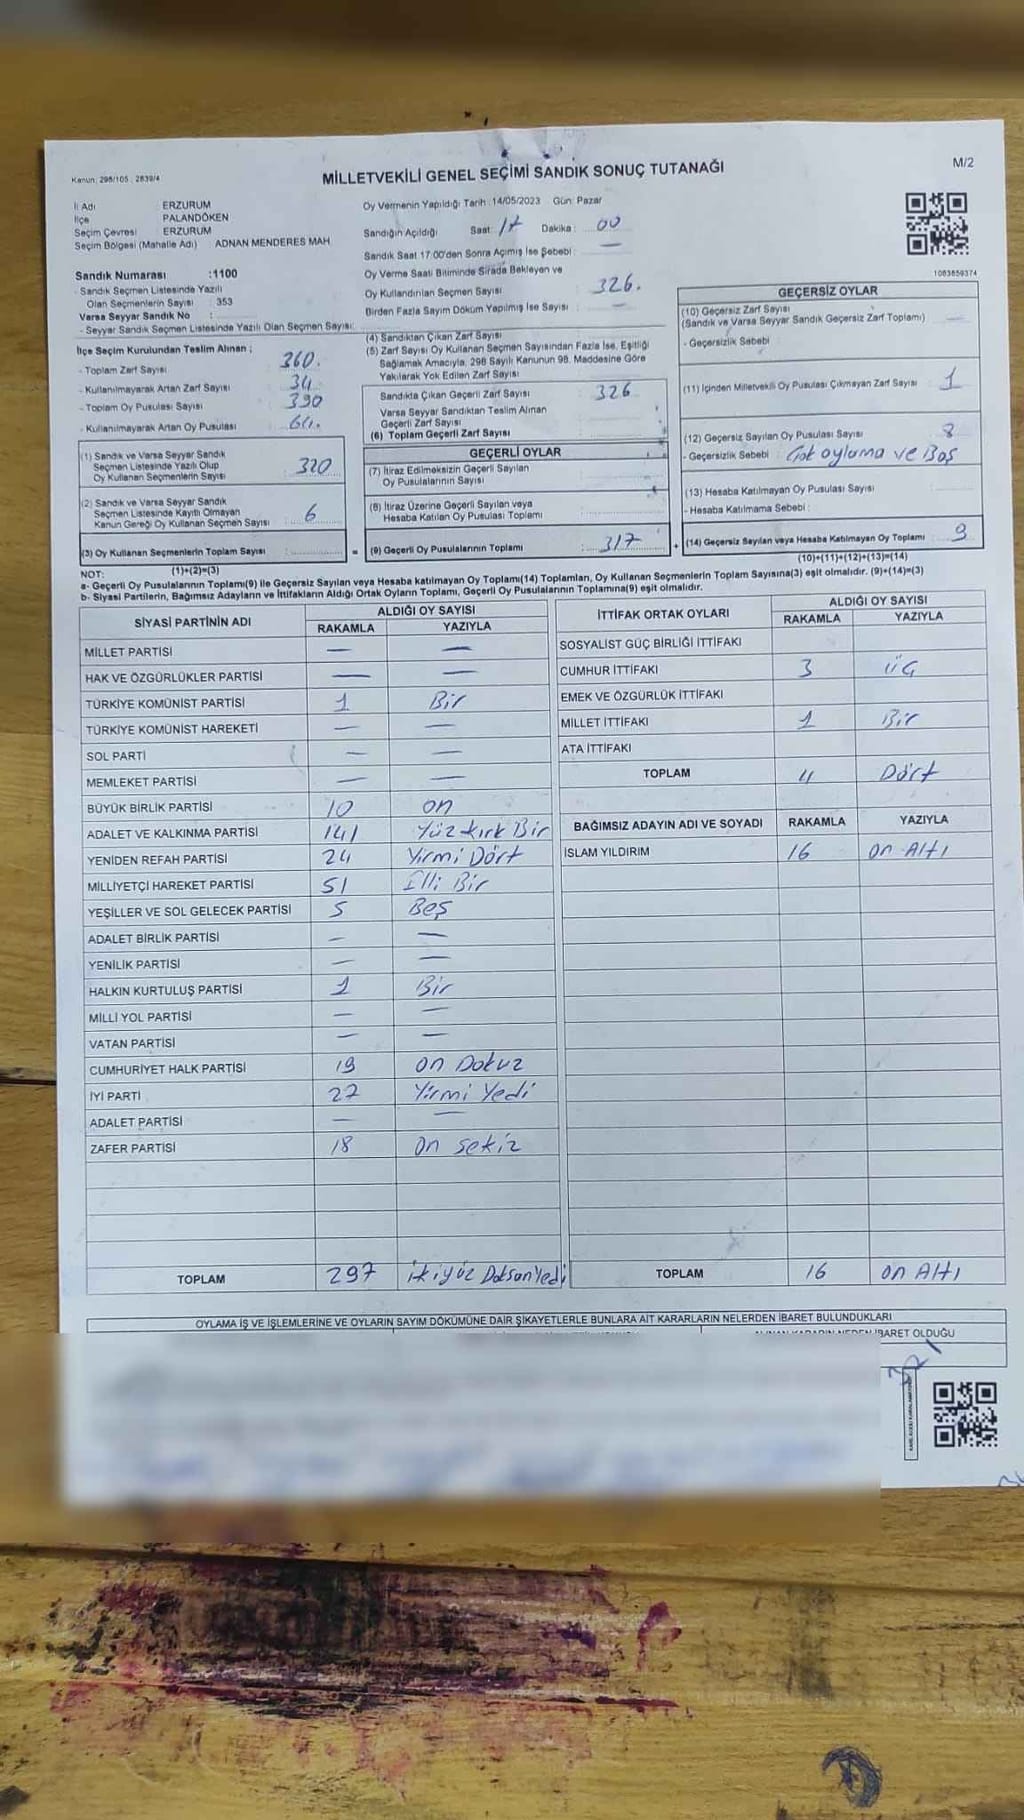 Kanun: 298/105 : 2839/4
MİLLETVEKİLİ GENEL SEÇİMİ SANDIK SONUÇ TUTANAĞI
M/2
İl Adı ERZURUM
İlçe PALANDÖKEN
Seçim Çevresi ERZURUM
Seçim Bölgesi (Mahalle Adı) ADNAN MENDERES MAH.
Sandık Numarası :1100
- Sandık Seçmen Listesinde Yazılı
Olan Seçmenlerin Sayısı : 353
Varsa Seyyar Sandık No :
- Seyyar Sandık Seçmen Listesinde Yazılı Olan Seçmen Sayısı:
İlçe Seçim Kurulundan Teslim Alınan ;
- Toplam Zarf Sayısı 360.
- Kullanılmayarak Artan Zarf Sayısı 34
- Toplam Oy Pusulası Sayısı 390
- Kullanılmayarak Artan Oy Pusulası 64.
(1) Sandık ve Varsa Seyyar Sandık
Seçmen Listesinde Yazılı Olup
Oy Kullanan Seçmenlerin Sayısı 320
(2) Sandık ve Varsa Seyyar Sandık
Seçmen Listesinde Kayıtlı Olmayan
Kanun Gereği Oy Kullanan Seçmen Sayısı 6
(3) Oy Kullanan Seçmenlerin Toplam Sayısı : =
(1)+(2)=(3)
Oy Vermenin Yapıldığı Tarih : 14/05/2023 Gün: Pazar
Sandığın Açıldığı Saat : 17 Dakika : 00
Sandık Saat 17:00'den Sonra Açımış İse Sebebi : —
Oy Verme Saati Bitiminde Sırada Bekleyen ve
Oy Kullandırılan Seçmen Sayısı 326.
Birden Fazla Sayım Döküm Yapılmış İse Sayısı : —
(4) Sandıktan Çıkan Zarf Sayısı
(5) Zarf Sayısı Oy Kullanan Seçmen Sayısından Fazla İse, Eşitliği
Sağlamak Amacıyla, 298 Sayılı Kanunun 98. Maddesine Göre
Yakılarak Yok Edilen Zarf Sayısı
Sandıkta Çıkan Geçerli Zarf Sayısı 326
Varsa Seyyar Sandıktan Teslim Alınan
Geçerli Zarf Sayısı
(6) Toplam Geçerli Zarf Sayısı
GEÇERLİ OYLAR
(7) İtiraz Edilmeksizin Geçerli Sayılan
Oy Pusulasının Sayısı
(8) İtiraz Üzerine Geçerli Sayılan veya
Hesaba Katılan Oy Pusulası Toplamı
(9) Geçerli Oy Pusulalarının Toplamı : 317 +
1063659374
GEÇERSİZ OYLAR
(10) Geçersiz Zarf Sayısı —
(Sandık ve Varsa Seyyar Sandık Geçersiz Zarf Toplamı)
- Geçersizlik Sebebi :
(11) İçinden Milletvekili Oy Pusulası Çıkmayan Zarf Sayısı 1
(12) Geçersiz Sayılan Oy Pusulası Sayısı 8
- Geçersizlik Sebebi : Çok oylama ve Boş
(13) Hesaba Katılmayan Oy Pusulası Sayısı
- Hesaba Katılmama Sebebi :
(14) Geçersiz Sayılan veya Hesaba Katılmayan Oy Toplamı 9
(10)+(11)+(12)+(13)=(14)
NOT:
a- Geçerli Oy Pusulalarının Toplamı(9) ile Geçersiz Sayılan veya Hesaba katılmayan Oy Toplamı(14) Toplamları, Oy Kullanan Seçmenlerin Toplam Sayısına(3) eşit olmalıdır. (9)+(14)=(3)
b- Siyasi Partilerin, Bağımsız Adayların ve İttifakların Aldığı Ortak Oyların Toplamı, Geçerli Oy Pusulalarının Toplamına(9) eşit olmalıdır.
SİYASİ PARTİNİN ADI ALDIĞI OY SAYISI
RAKAMLA YAZIYLA
MİLLET PARTİSİ — —
HAK VE ÖZGÜRLÜKLER PARTİSİ — —
TÜRKİYE KOMÜNİST PARTİSİ 1 Bir
TÜRKİYE KOMÜNİST HAREKETİ — —
SOL PARTİ — —
MEMLEKET PARTİSİ — —
BÜYÜK BİRLİK PARTİSİ 10 on
ADALET VE KALKINMA PARTİSİ 141 Yüz kırk Bir
YENİDEN REFAH PARTİSİ 24 Yirmi Dört
MİLLİYETÇİ HAREKET PARTİSİ 51 Elli Bir
YEŞİLLER VE SOL GELECEK PARTİSİ 5 Beş
ADALET BİRLİK PARTİSİ — —
YENİLİK PARTİSİ — —
HALKIN KURTULUŞ PARTİSİ 1 Bir
MİLLİ YOL PARTİSİ — —
VATAN PARTİSİ — —
CUMHURİYET HALK PARTİSİ 19 on Dokuz
İYİ PARTİ 27 Yirmi Yedi
ADALET PARTİSİ — —
ZAFER PARTİSİ 18 on sekiz
TOPLAM 297 ikiyüz DoksanYedi
İTTİFAK ORTAK OYLARI ALDIĞI OY SAYISI
RAKAMLA YAZIYLA
SOSYALİST GÜÇ BİRLİĞİ İTTİFAKI
CUMHUR İTTİFAKI 3 üç
EMEK VE ÖZGÜRLÜK İTTİFAKI
MİLLET İTTİFAKI 1 Bir
ATA İTTİFAKI
TOPLAM 4 Dört
BAĞIMSIZ ADAYIN ADI VE SOYADI RAKAMLA YAZIYLA
İSLAM YILDIRIM 16 on Altı
TOPLAM 16 on Altı
OYLAMA İŞ VE İŞLEMLERİNE VE OYLARIN SAYIM DÖKÜMÜNE DAİR ŞİKAYETLERLE BUNLARA AİT KARARLARIN NELERDEN İBARET BULUNDUKLARI
KARARIN NEDEN İBARET OLDUĞU